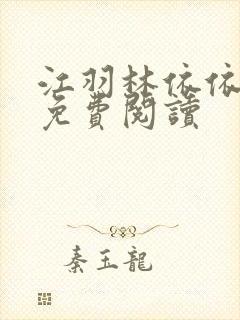 江羽林依依
免費閱讀
秦玉龍